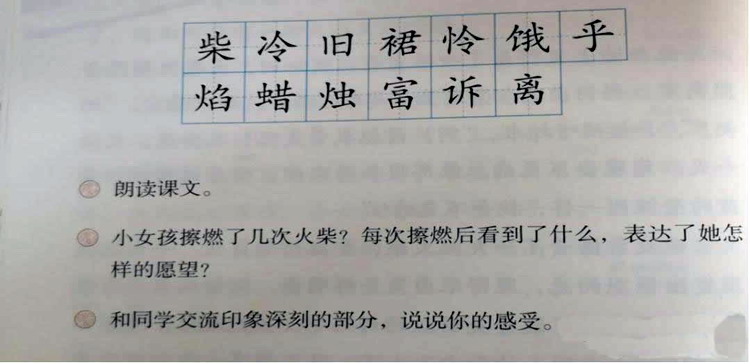 柴冷旧裙怜饿乎
焰蜡烛富诉离
朗读课文。
小女孩擦燃了几次火柴？每次擦燃后看到了什么，表达了她怎
样的愿望？
和同学交流印象深刻的部分，说说你的感受。